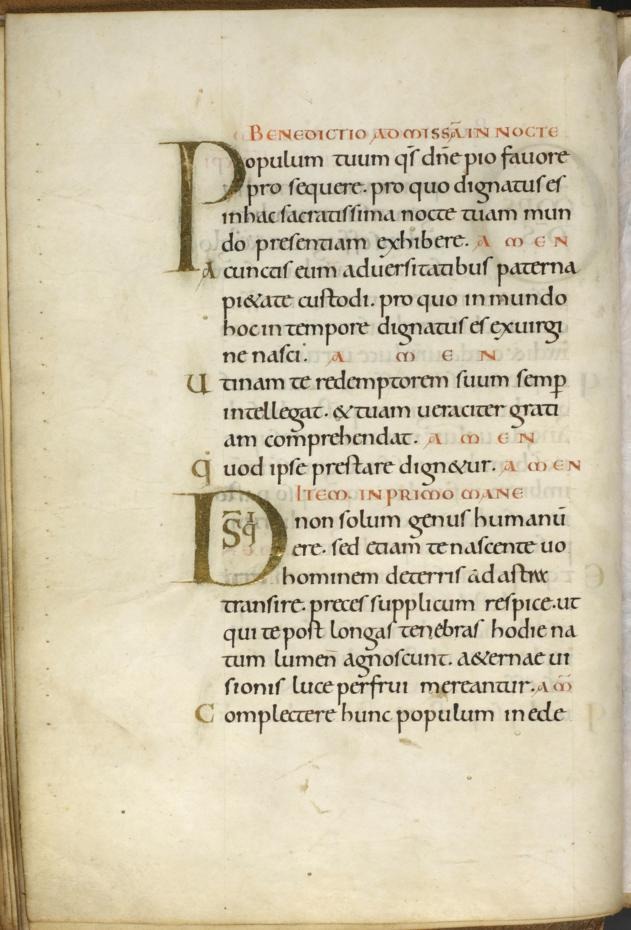 BENEDICTIO AD MISSĀ IN NOCTE
Populum tuum qs̄ dn̄e pio fauore
pro sequere. pro quo dignatus es
in hac sacratissima nocte tuam mun
do presentiam exhibere. AMEN
A cunctis eum aduersitatibus paterna
pi&ate custodi. pro quo in mundo
hoc in tempore dignatus es exuirgi
ne nasci. AMEN
Utinam te redemptorem suum semp̄
intellegat. & tuam ueraciter grati
am comprehendat. AMEN
quod ipse prestare dign&ur. AMEN
ITEM. IN PRIMO MANE
Ds̄ qı non solum genus humanū
ere. sed etiam te nascente uo
hominem deterris ad astra
transire. preces supplicum respice. ut
qui te post longas tenebras hodie na
tum lumen̄ agnoscunt. a&ernae ui
sionis luce perfrui mereantur. AM̄
Complectere hunc populum in ede